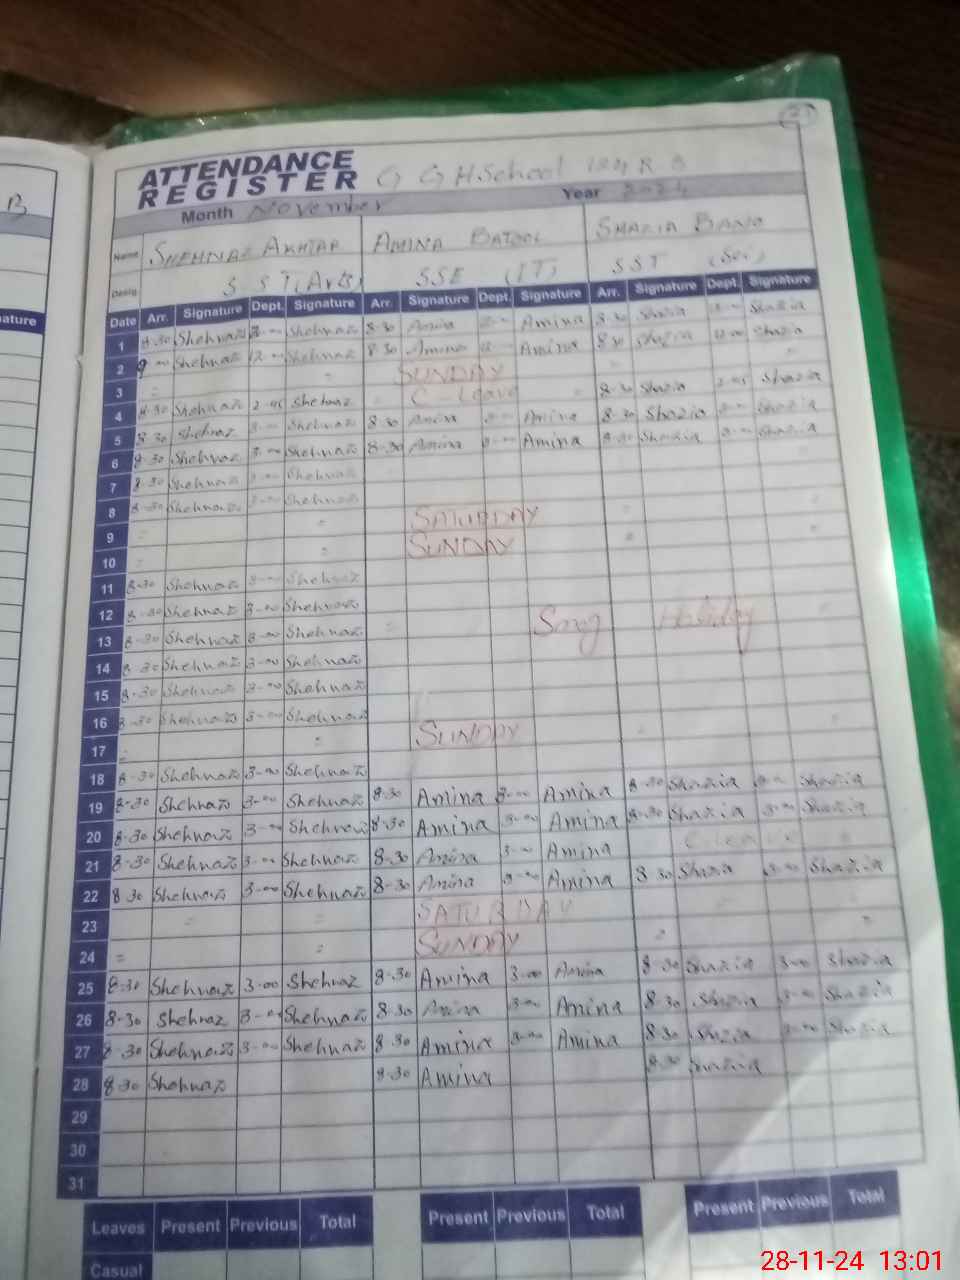 B
ature
21
ATTENDANCE
REGISTER G G H.School 124 R.B
Month November Year 2024
Name SHEHNAZ AKHTAR AMINA BATOOL SHAZIA BANO
Desig. S.S T(Arts) SSE (IT) SST (Sci)
Date Arr. Signature Dept. Signature Arr. Signature Dept. Signature Arr. Signature Dept. Signature
1 8.30 Shehnaz 12-00 Shehnaz 8-30 Amina 12-00 Amina 8-30 Shazia 12-00 Shazia
2 Shehnaz 12-00 Shehnaz 8-30 Amina 12-00 Amina 8-30 Shazia 12-00 Shazia
3 = = SUNDAY = =
4 8-30 Shehnaz 2-45 Shehnaz C-Leave 8-30 Shazia 2-45 Shazia
5 8-30 Shehnaz 3-00 Shehnaz 8-30 Amina 3-00 Amina 8-30 Shazia 3-00 Shazia
6 8-30 Shehnaz 3-00 Shehnaz 8-30 Amina 3-00 Amina 8-30 Shazia 3-00 Shazia
7 8-30 Shehnaz 3-00 Shehnaz
8 8-30 Shehnaz 3-00 Shehnaz
9 = = SATURDAY = =
10 = = SUNDAY = =
11 8-30 Shehnaz 3-00 Shehnaz
12 8-30 Shehnaz 3-00 Shehnaz
13 8-30 Shehnaz 3-00 Shehnaz = Smog Holiday =
14 8-30 Shehnaz 3-00 Shehnaz
15 8-30 Shehnaz 3-00 Shehnaz
16 8-30 Shehnaz 3-00 Shehnaz
17 = = SUNDAY = =
18 8-30 Shehnaz 3-00 Shehnaz
19 8-30 Shehnaz 3-00 Shehnaz 8-30 Amina 3-00 Amina 8-30 Shazia 3-00 Shazia
20 8-30 Shehnaz 3-00 Shehnaz 8-30 Amina 3-00 Amina 8-30 Shazia 3-00 Shazia
21 8-30 Shehnaz 3-00 Shehnaz 8-30 Amina 3-00 Amina C-leave
22 8-30 Shehnaz 3-00 Shehnaz 8-30 Amina 3-00 Amina 8-30 Shazia 3-00 Shazia
23 = = SATURDAY = =
24 = = SUNDAY = =
25 8-30 Shehnaz 3-00 Shehnaz 8-30 Amina 3-00 Amina 8-30 Shazia 3-00 Shazia
26 8-30 Shehnaz 3-00 Shehnaz 8-30 Amina 3-00 Amina 8-30 Shazia 3-00 Shazia
27 8-30 Shehnaz 3-00 Shehnaz 8-30 Amina 3-00 Amina 8-30 Shazia 3-00 Shazia
28 8-30 Shehnaz 8-30 Amina 8-30 Shazia
29
30
31
Leaves Present Previous Total Present Previous Total Present Previous Total
Casual
28-11-24 13:01